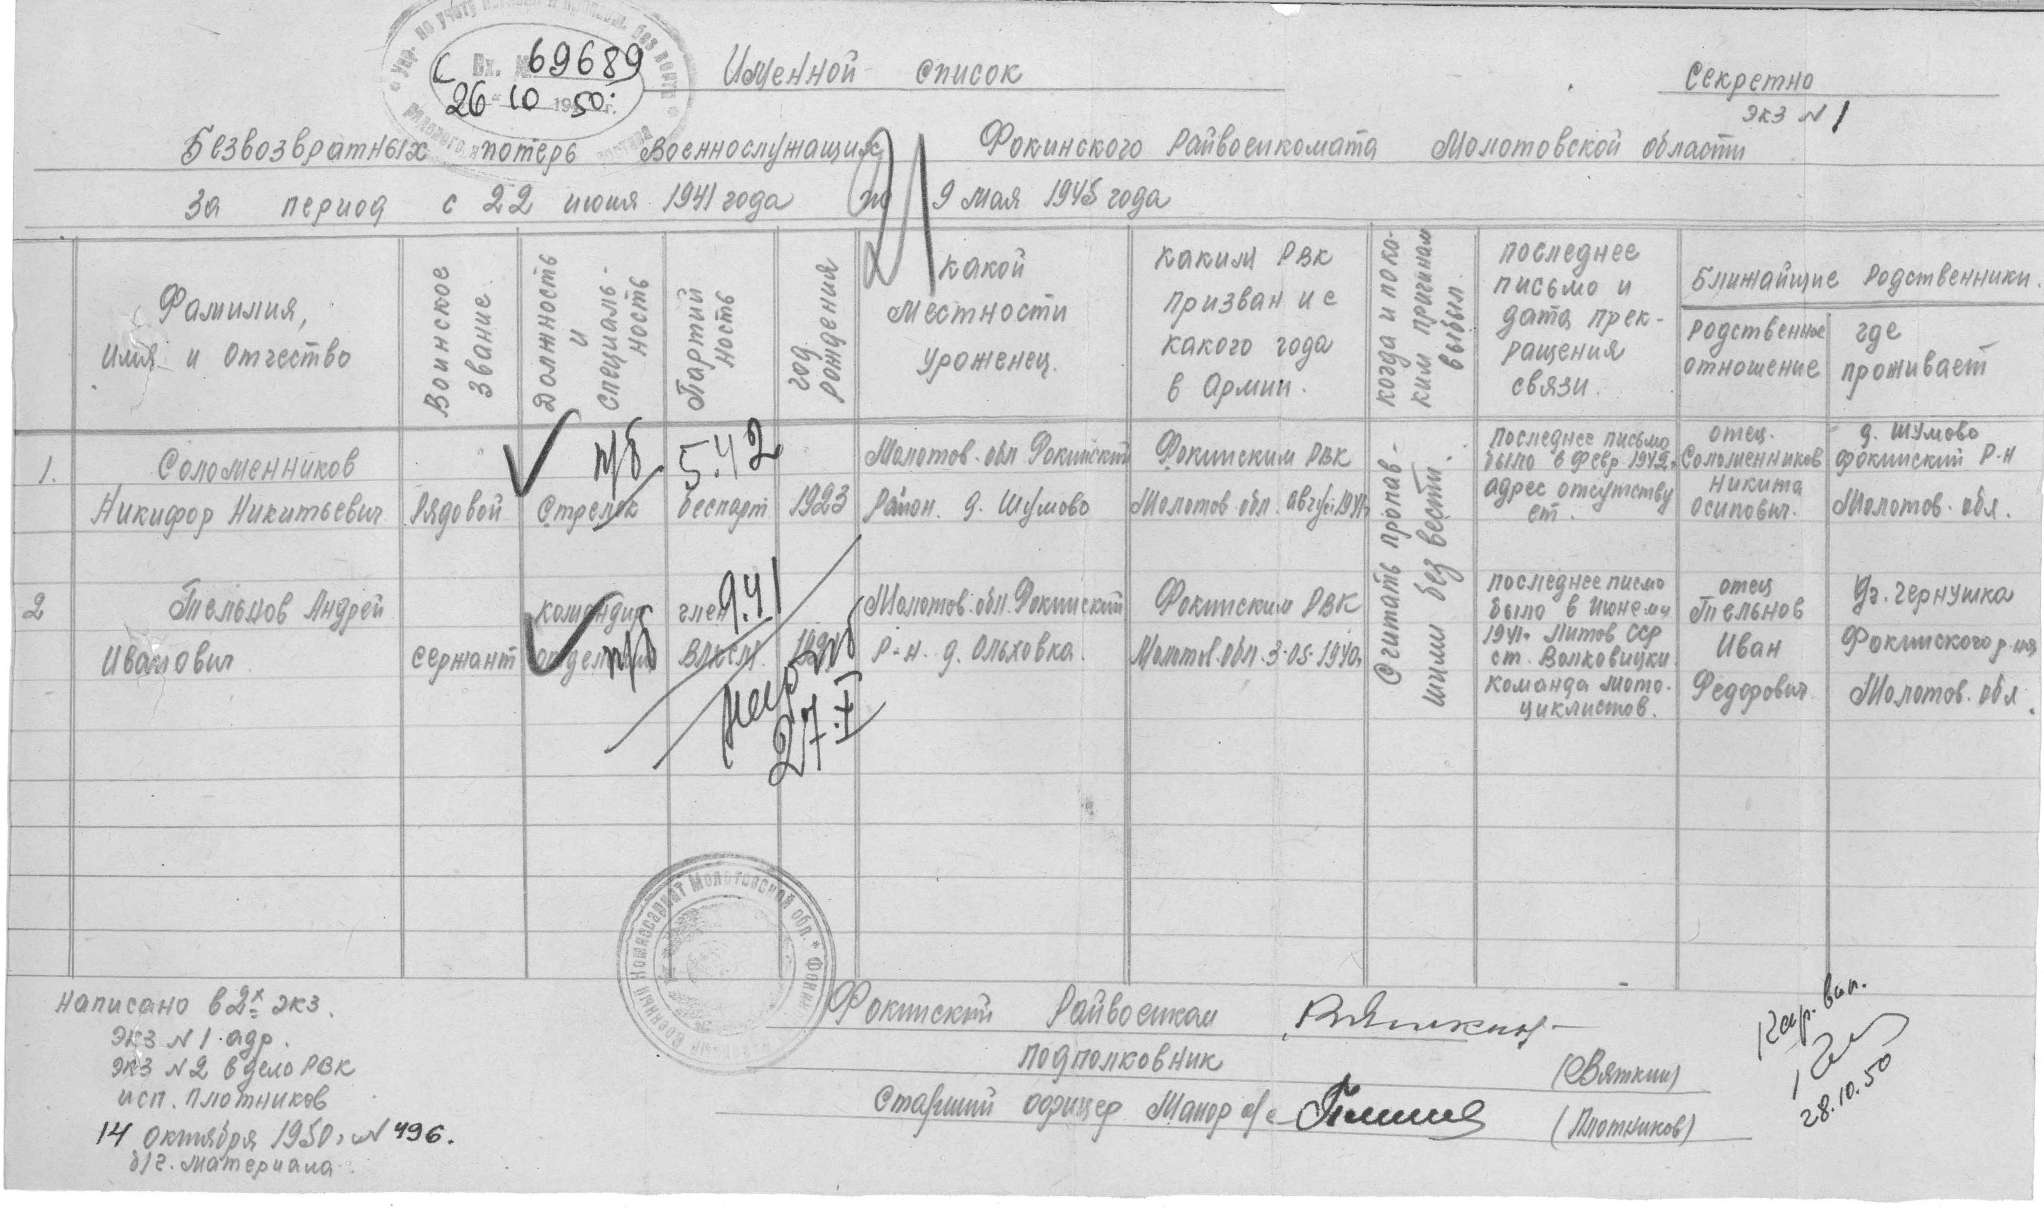 Вх. № 69689
26 10 1950 г.
Именной список
Секретно
экз N 1
Безвозвратных потерь военнослужащих Фокинского Райвоенкомата Молотовской области
за период с 22 июня 1941 года по 9 мая 1945 года
21
Фамилия,
имя и отчество
Воинское
звание.
Должность
и
специаль-
ность
Партий
ность
год
рождения
какой
местности
уроженец.
каким РВК
призван и с
какого года
в Армии.
когда и по ка-
ким причинам
выбыл
последнее
письмо и
дата прек-
ращения
связи.
Ближайшие родственники.
родственное
отношение
где
проживает
1.
Соломенников
Никифор Никитьевич
Рядовой
п/б
Стрелок
5.42
беспарт
1923
Молотов. обл Фокинский
Район. д. Шумово
Фокинским РВК
Молотов обл. август 1941г
Считать пропав-
шим без вести.
последнее письмо
было в февр 1942г
адрес отсутству
ет.
отец.
Соломенников
Никита
Осипович.
д. Шумово
Фокинский Р-н
Молотов. обл.
2
Тельнов Андрей
Иванович
сержант
командир
отделения
п/б
член
ВЛКСМ.
9.41
27.X
Молотов. обл. Фокинский
Р-н. д. Ольховка.
Фокинским РВК
Молотов. обл. 3-05-1940г
последнее писмо
было в июнем-ц
1941г Литов ССР
ст. Волковицки
команда мото-
циклистов.
отец
Тельнов
Иван
Федорович
дз. Чернушка
Фокинского р-на
Молотов. обл.
написано в 2х экз.
экз N 1 адр.
экз N 2 в дело РВК
исп. Плотников
14 октября 1950г N 496.
б/г. материала
Военный Комиссариат Молотовской обл.
Фокинский Райвоенком
подполковник
(Вяткин)
Старший офицер Майор а/с
(Плотников)
Кар. вып.
28.10.50